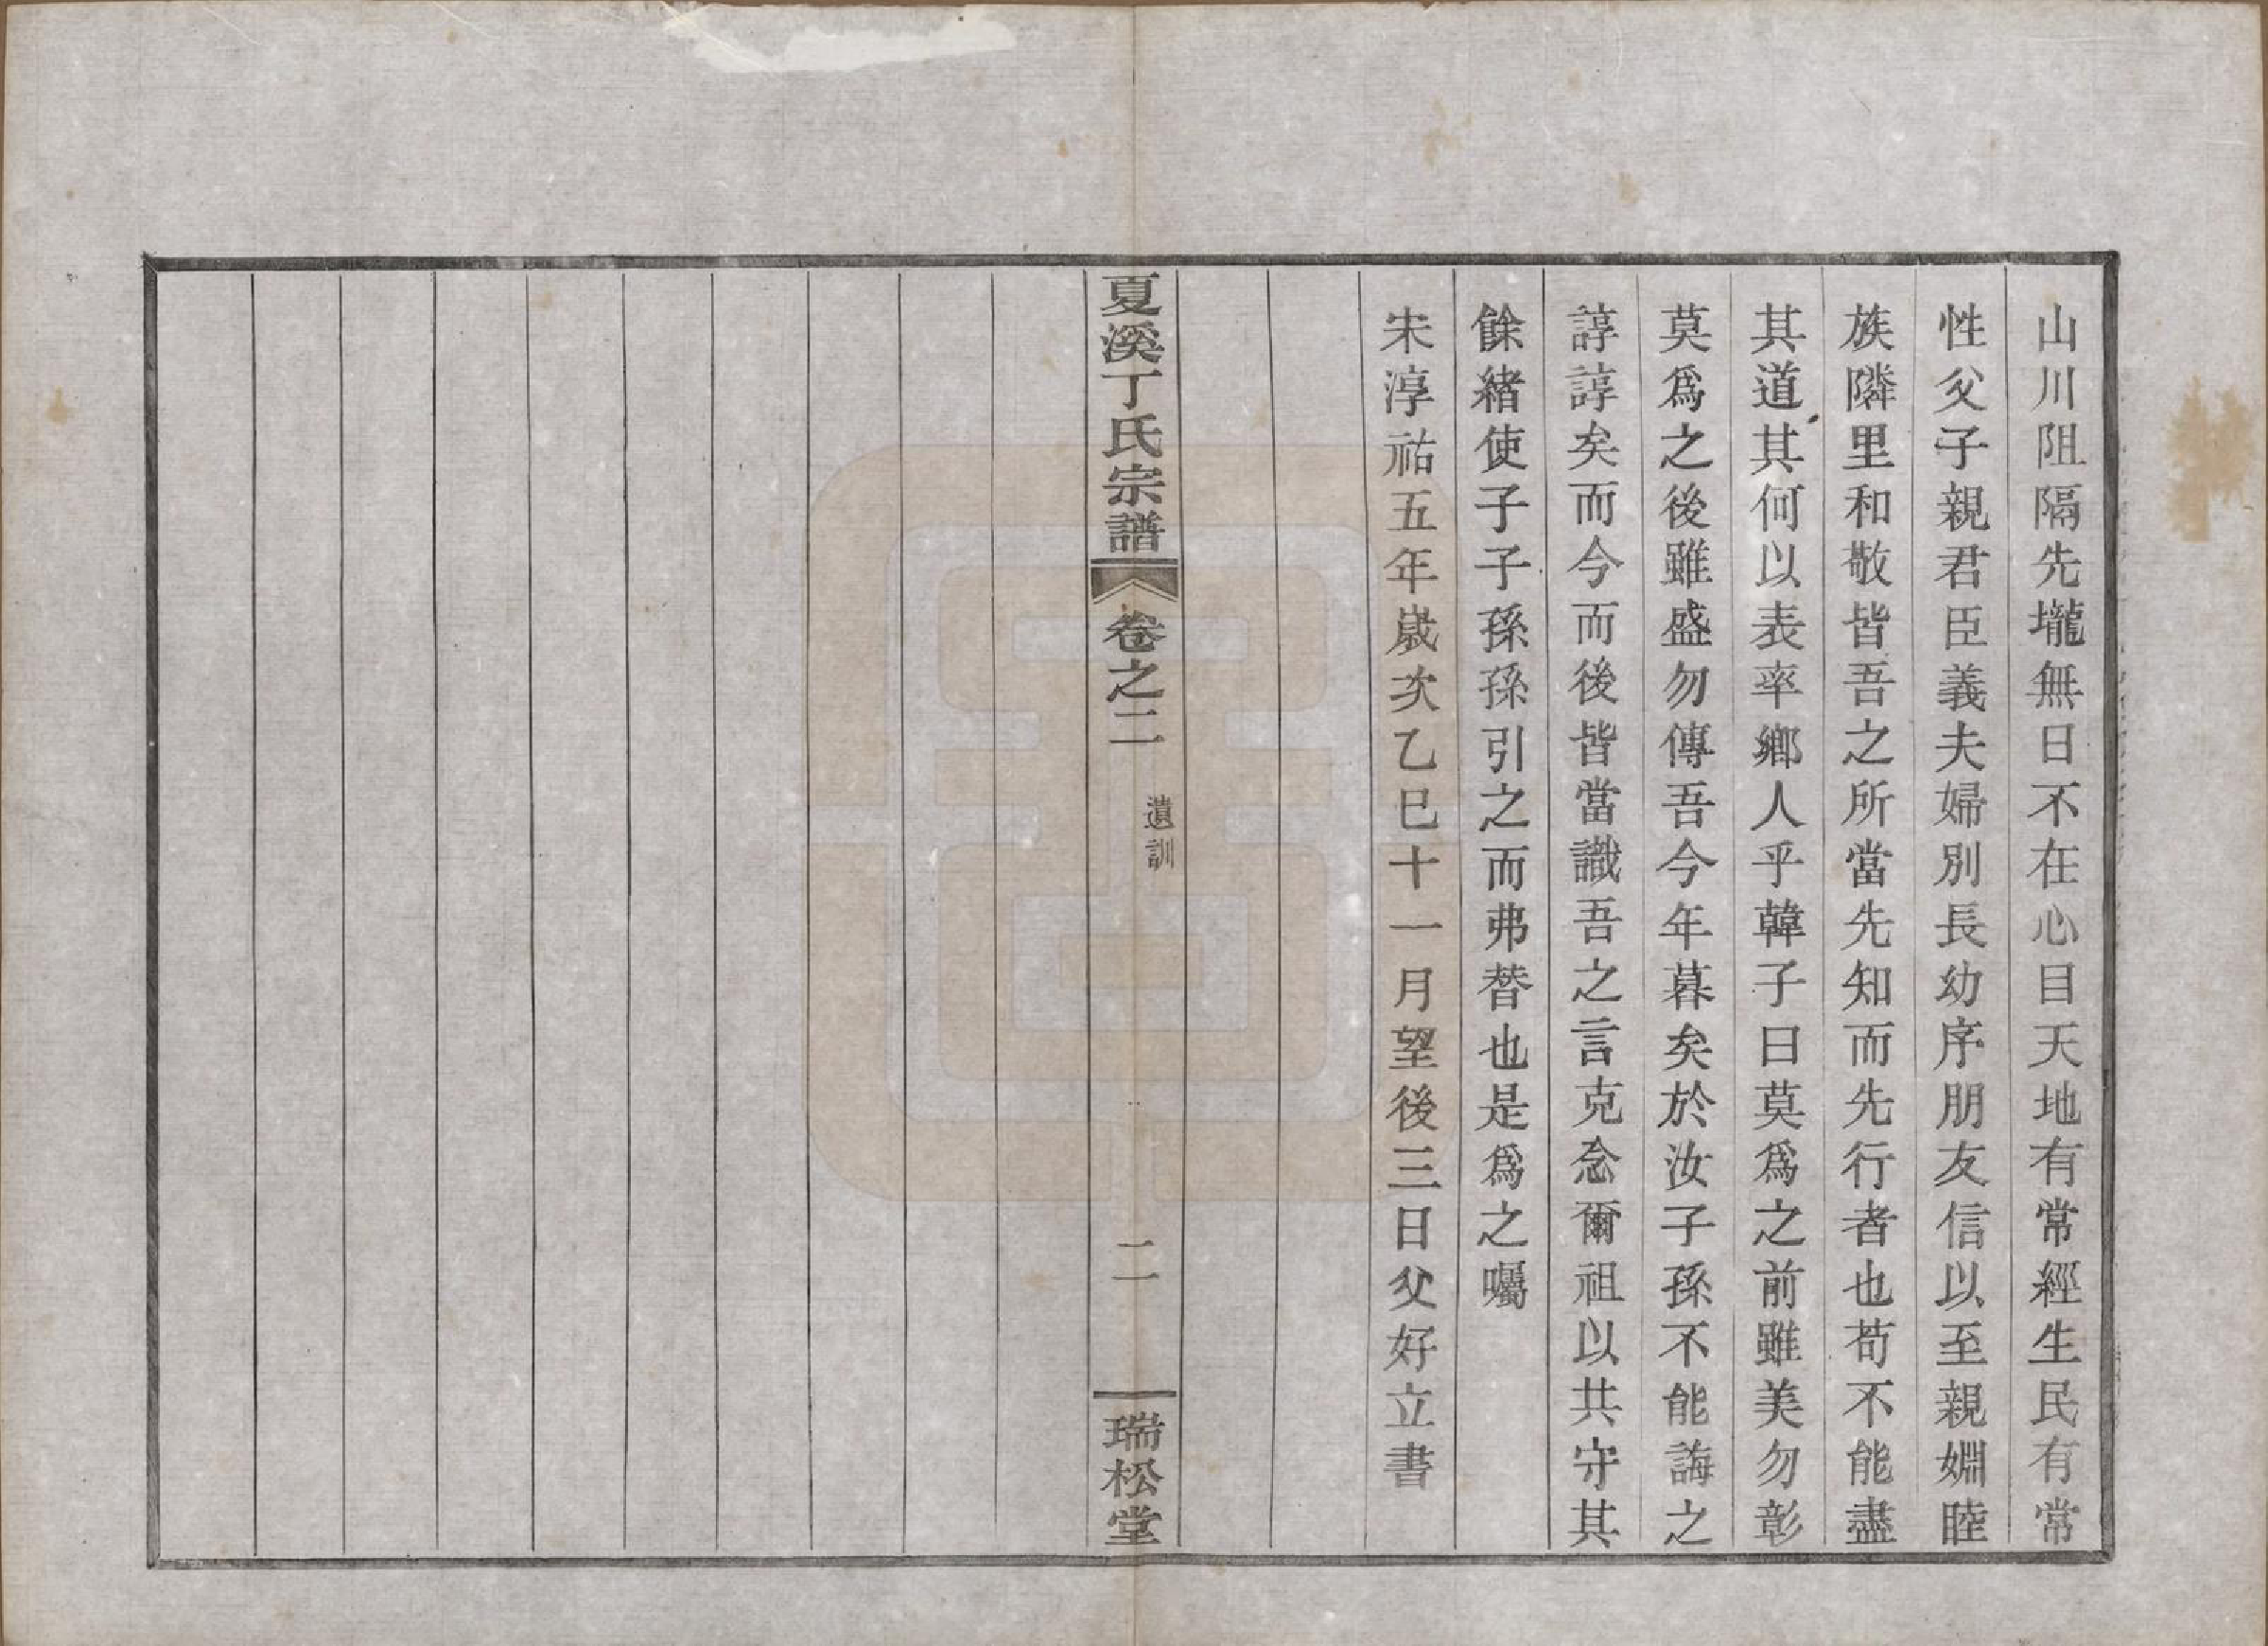 山川阻隔先壠無日不在心目天地有常經生民有常
性父子親君臣義夫婦別長幼序朋友信以至親婣睦
族隣里和敬皆吾之所當先知而先行者也苟不能盡
其道其何以表率鄉人乎韓子曰莫爲之前雖美勿彰
莫爲之後雖盛勿傳吾今年暮矣於汝子孫不能誨之
諄諄矣而今而後皆當識吾之言克念爾祖以共守其
餘緒使子子孫孫引之而弗替也是爲之囑
宋淳祐五年歲次乙巳十一月望後三日父好立書
夏溪丁氏宗譜 卷之二 遺訓 二 瑞松堂